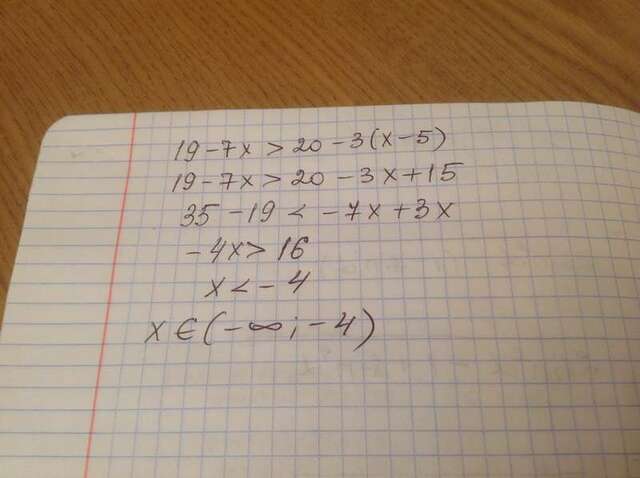 19-7x > 20-3(x-5)
19-7x > 20-3x+15
35-19 < -7x+3x
-4x > 16
x < -4
x ∈ (-∞; -4)